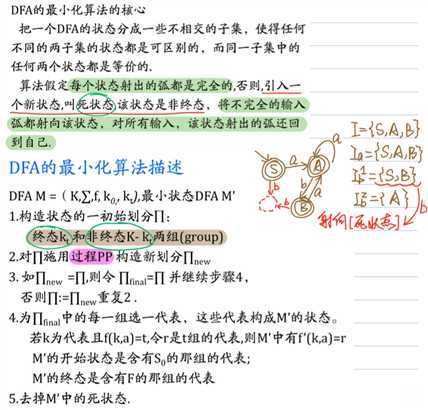 DFA的最小化算法的核心
把一个DFA的状态分成一些不相交的子集，使得任何
不同的两子集的状态都是可区别的，而同一子集中的
任何两个状态都是等价的.
算法假定每个状态射出的弧都是完全的,否则,引入一
个新状态,叫死状态,该状态是非终态，将不完全的输入
弧都射向该状态，对所有输入，该状态射出的弧还回
到自己.
S
a
A
a
b
b
B
b
I={S,A,B}
Ia={S,A,B}
={S,B}
={A}
b
射向[死状态]
DFA的最小化算法描述
DFA M =（ K,∑,f, k₀,, kₜ),最小状态DFA M'
1.构造状态的一初始划分∏:
终态kₜ和非终态K- kₜ两组(group)
2.对∏施用过程PP 构造新划分∏new
3. 如∏new =∏,则令 ∏final=∏ 并继续步骤4，
否则∏:=∏new重复2 .
4.为∏final中的每一组选一代表，这些代表构成M'的状态。
若k为代表且f(k,a)=t,令r是t组的代表,则M'中有f'(k,a)=r
M'的开始状态是含有S₀的那组的代表;
M'的终态是含有F的那组的代表
5.去掉M'中的死状态.